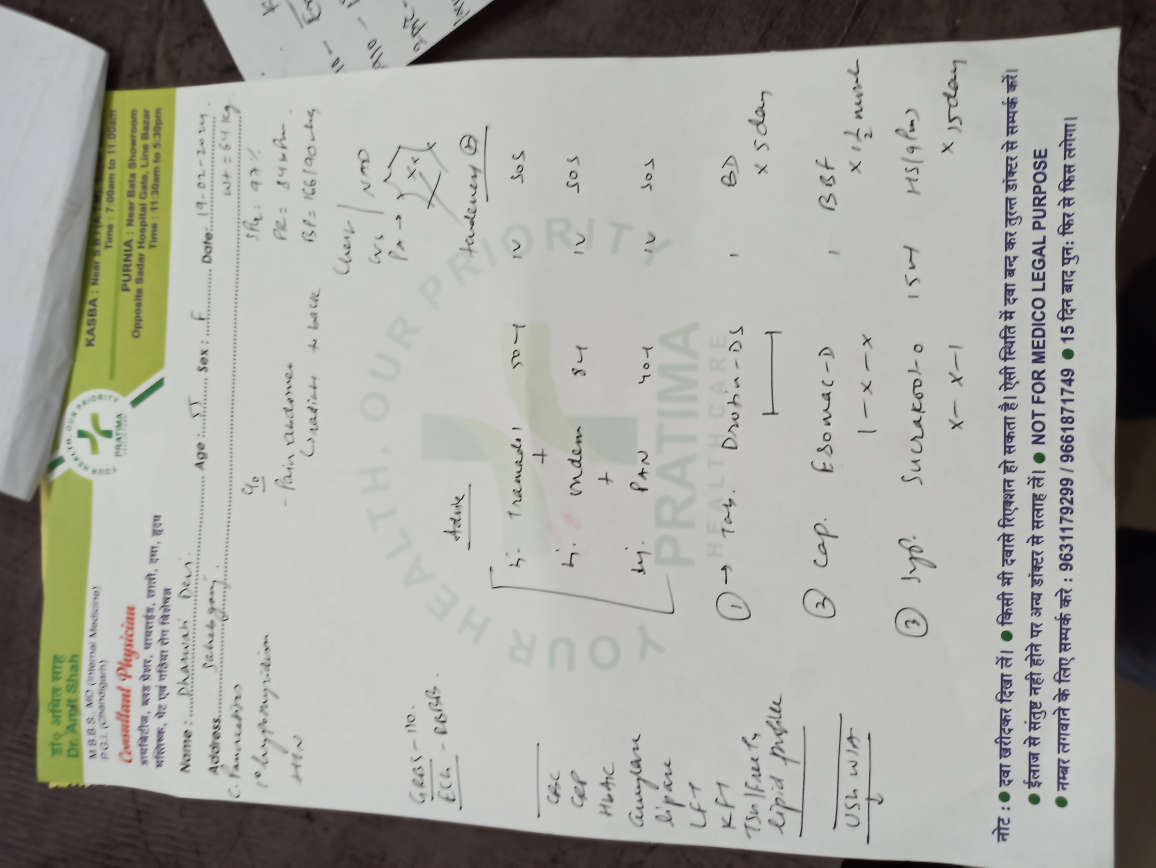 डॉ० अमित साह
Dr. Amit Shah
M.B.B.S., MD (Internal Medicine)
P.G.I. (Chandigarh)
Consultant Physician
डायबिटीज, ब्लड प्रेशर, थायराईड, छाती, दमा, हृदय
मस्तिष्क, पेट एवं गठिया रोग विशेषज्ञ
YOUR HEALTH, OUR PRIORITY
PRATIMA
HEALTHCARE
KASBA : Near S B I
Time : 7:00am to 11:00am
PURNIA : Near Bata Showroom
Opposite Sadar Hospital Gate, Line Bazar
Time : 11:30am to 5:30pm
Name : Dhanwati Devi Age : 55 Sex : F Date: 19-02-2024
Address Sahebganj Wt = 64 Kg
C. Pancreatitis
1° hypothyroidism
HTN
C/o
- Pain abdomen
radiate to back
SPO2 = 97%
PR = 84 b/m
BP = 166/90 mmHg
Chest / NAD
CVS
P/A →
tenderness +
GRBS - 110.
ECG - RBBB.
Advice
Inj. Tramadol 50mg IV SOS
+
Inj. ondem 8mg IV SOS
+
Inj. PAN 40mg IV SOS
CBC
CRP
HbA1C
amylase
lipase
LFT
KFT
TSH/Free T4
lipid profile
USG W/A
① → Tab. Drotin-DS 1 BD
x 5 day
② Cap. Esomac-D 1 BBF
1-x-x x 1½ month
③ Syp. Sucrakool-O 15ml HS (9pm)
x-x-1 x 15 day
नोट : ● दवा खरीदकर दिखा लें। ● किसी भी दवासे रिएक्शन हो सकता है। ऐसी स्थिति में दवा बन्द कर तुरन्त डॉक्टर से सम्पर्क करें।
● ईलाज से संतुष्ट नही होने पर अन्य डॉक्टर से सलाह लें। ● NOT FOR MEDICO LEGAL PURPOSE
● नम्बर लगवाने के लिए सम्पर्क करे : 9631179299 / 9661871749 ● 15 दिन बाद पुन: फिर से फिस लगेगा।